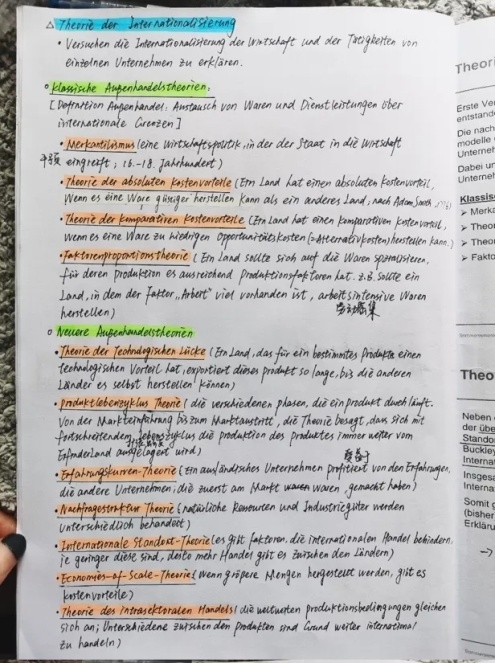 △ Theorie der Internationalisierung
• Versuchen die Internationalisierung der Wirtschaft und der Tätigkeiten von
einzelnen Unternehmen zu erklären.
○ Klassische Außenhandelstheorien:
[Defination Außenhandel: Austausch von Waren und Dienstleistungen über
internationale Grenzen]
• Merkantilismus (eine Wirtschaftspolitik, in der der Staat in die Wirtschaft
eingreift; 16.-18. Jahrhundert)
• Theorie der absoluten Kostenvorteile (Ein Land hat einen absoluten Kostenvorteil,
Wenn es eine Ware günstiger herstellen kann als ein anderes Land, nach Adam Smith
• Theorie der komparativen Kostenvorteile (Ein Land hat einen komparativen Kostenvorteil,
wenn es eine Ware zu niedrigen Opportunitätskosten (=Alternativkosten) herstellen kann.)
• Faktorenproportionstheorie (Ein Land sollte sich auf die Waren spezialisieren,
für deren Produktion es ausreichend Produktionsfaktoren hat. z.B. sollte ein
Land, in dem der Faktor „Arbeit" viel vorhanden ist, arbeitsintensive Waren
herstellen)
○ Neuere Außenhandelstheorien
• Theorie der Technologischen Lücke (Ein Land, das für ein bestimmtes Produkte einen
technologischen Vorteil hat, exportiert dieses Produkt so lange, bis die anderen
Länder es selbst herstellen können)
• Produktlebenzyklus Theorie (die verschiedenen Phasen, die ein Produkt durchläuft.
Von der Markteinführung bis zum Marktaustritt, die Theorie besagt, dass sich mit
fortschreitendem Lebenszyklus die Produktion des Produktes immer weiter vom
Erfinderland ausgelagert wird)
• Erfahrungskurven-Theorie (Ein ausländisches Unternehmen profitiert von den Erfahrungen,
die andere Unternehmen, die zuerst am Markt waren, gemacht haben)
• Nachfragestruktur Theorie (natürliche Resourcen und Industriegüter werden
unterschiedlich behandelt)
• Internationale Standort-Theorie (es gibt Faktoren, die internationalen Handel behindern,
je geringer diese sind, desto mehr Handel gibt es zwischen den Ländern)
• Economies-of-Scale-Theorie (wenn größere Mengen hergestellt werden, gibt es
Kostenvorteile)
• Theorie des intrasektoralen Handels (die weltweiten Produktionsbedingungen gleichen
sich an; Unterschiedene zwischen den Produkten sind Grund weiter international
zu handeln)
Theori
Erste Ve
entstande
Die nach
modelle
Unterneh
Dabei un
Unterneh
Klassisc
➤ Merka
➤ Theor
➤ Theor
➤ Fakto
Theo
Neben
der übe
Stando
Buckley
Internat
Insgesa
Interna
Somit g
(bisher
Erklär